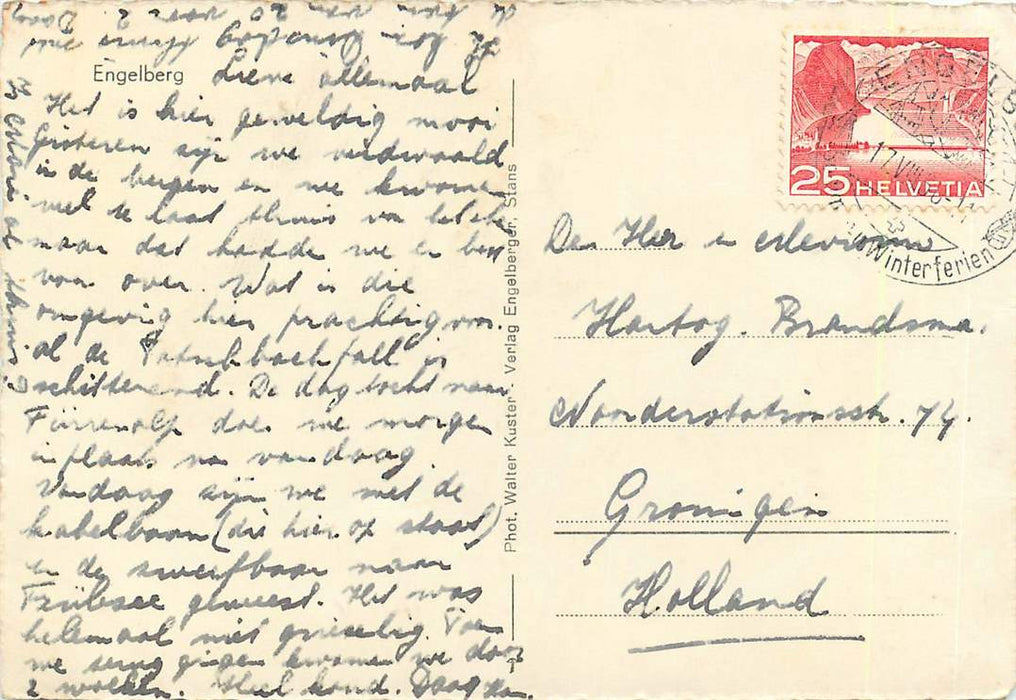 Engelberg
Lieve allemaal
Het is hier geweldig mooi
Gisteren zijn we verdwaald
in de bergen en we kwamen
veel te laat thuis
maar dat hadde we er best
voor over. Wat is die
omgeving hier prachtig voor
al de fall is
schitterend. De dag tocht naar
Fürrenalp doen we morgen
in plaats van vandaag
Vandaag zijn we met de
kabelbaan (die hier op staat)
en de zweefbaan naar
Trübsee geweest. Het was
helemaal niet griezelig. Toen
we terug gingen kwamen we door
2 wolken. Heel koud. Daag
Phot. Walter Kuster - Verlag Engelberger, Stans
25 HELVETIA
ENGELBERG
17.VIII
Winterferien
De Heer en Mevrouw
Hartog. Brandsma.
Noorderstationsstr. 74.
Groningen
Holland